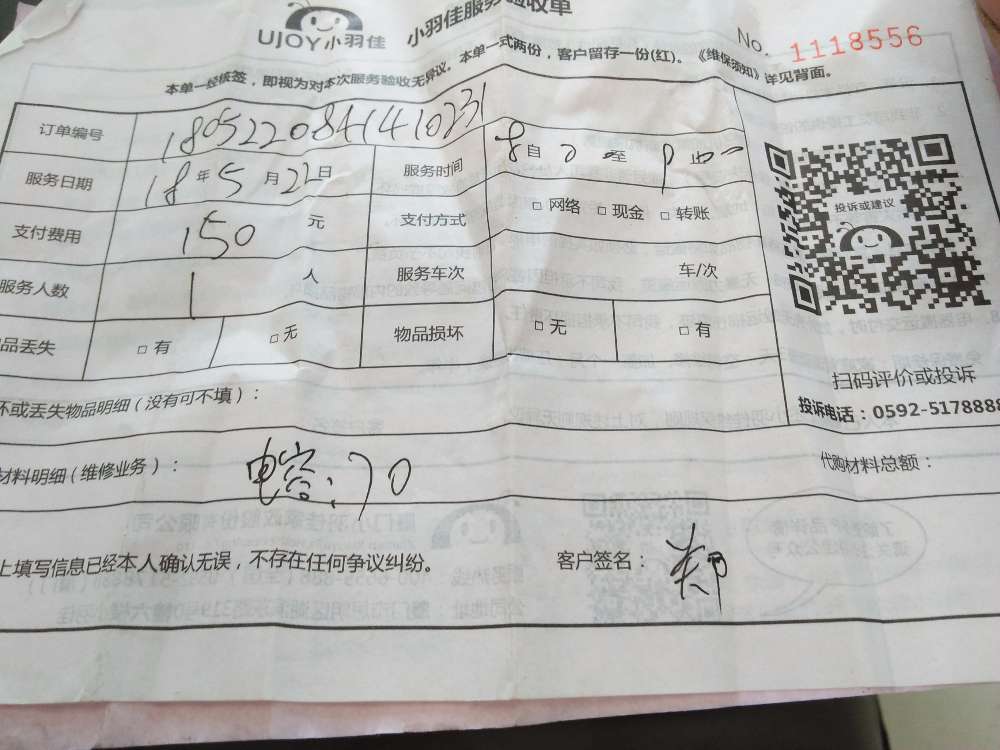 UJOY小羽佳 小羽佳服务验收单
No. 1118556
本单一经核签，即视为对本次服务验收无异议。本单一式两份，客户留存一份(红)。《维保须知》详见背面。
订单编号 180522084141410231
服务日期 18年5月22日 服务时间 8自 至
支付费用 150 元 支付方式 □ 网络 □ 现金 □ 转账
服务人数 1 人 服务车次 车/次
品丢失 □ 有 □ 无 物品损坏 □ 无 □ 有
投诉或建议
扫码评价或投诉
投诉电话：0592-5178888
坏或丢失物品明细（没有可不填）：
材料明细（维修业务）： 电容：70 代购材料总额：
上填写信息已经本人确认无误，不存在任何争议纠纷。 客户签名：